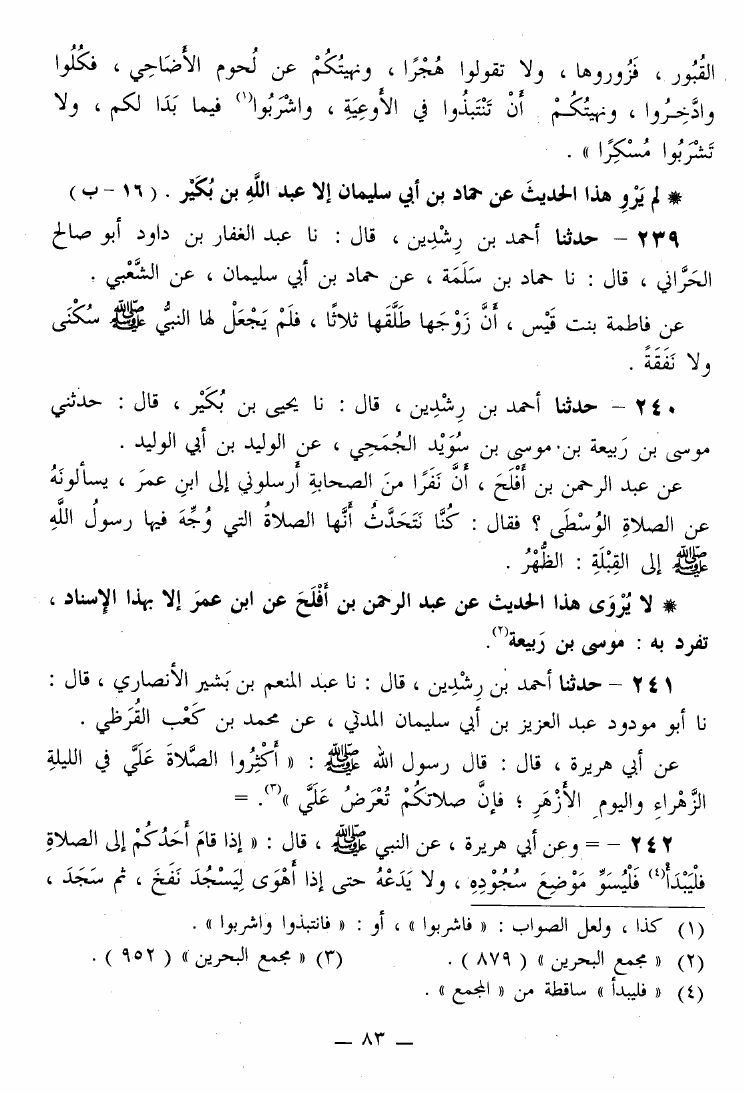 القُبُور ، فَزُوروها ، ولا تقولوا هُجْرًا ، ونهيتُكُمْ عن لُحوم الأَضَاحِي ، فكُلُوا
وادَّخِـرُوا ، ونهيتُكُـمْ أَنْ تَنْتَبِذُوا في الأَوعِيَةِ ، واشْرَبُوا(١) فيما بَدَا لكم ، ولا
تَشْرَبُوا مُسْكِرًا » .
* لم يَرْوِ هذا الحديثَ عن حماد بن أبي سليمان إلا عبد اللَّهِ بن بُكَيْر . ( ١٦ – ب )
٢٣٩ – حدثنا أحمد بن رِشْدِين ، قال : نا عبد الغفار بن داود أبو صالح
الحَرَّاني ، قال : نا حماد بن سَلَمَة ، عن حماد بن أبي سليمان ، عن الشَّعْبي .
عن فاطمة بنت قَيْس ، أَنَّ زَوْجَها طَلَّقَها ثلاثًا ، فلَمْ يَجْعَلْ لها النبيُّ ﷺ سُكْنَى
ولا نَفَقَةً .
٢٤٠ – حدثنا أحمد بن رِشْدِين ، قال : نا يحيى بن بُكَيْر ، قال : حدثني
موسى بن رَبيعة بن موسى بن سُوَيْد الجُمَحِي ، عن الوليد بن أبي الوليد .
عن عبد الرحمن بن أَفْلَحَ ، أَنَّ نَفَرًا منَ الصحابةِ أَرسلوني إلى ابنِ عمرَ ، يسألونَهُ
عن الصلاةِ الوُسْطَى ؟ فقال : كُنَّا نَتَحَدَّثُ أَنَّها الصلاةُ التي وُجِّهَ فيها رسولُ اللَّهِ
ﷺ إلى القِبْلَةِ : الظُّهْرُ .
* لا يُرْوَى هذا الحديث عن عبد الرحمن بن أَفْلَحَ عن ابن عمرَ إلا بهذا الإسناد ،
تفرد به : موسى بن رَبيعة(٢).
٢٤١ – حدثنا أحمد بن رِشْدِين ، قال : نا عبد المنعم بن بَشير الأنصاري ، قال :
نا أبو مودود عبد العزيز بن أبي سليمان المدني ، عن محمد بن كَعْب القُرَظي .
عن أبي هريرة ، قال : قال رسول الله ﷺ : « أَكْثِرُوا الصَّلاةَ عَلَيَّ في الليلةِ
الزَّهْراءِ واليومِ الأَزْهَرِ ؛ فإنَّ صلاتكُمْ تُعْرَضُ عَلَيَّ »(٣). =
٢٤٢ – = وعن أبي هريرة ، عن النبي ﷺ ، قال : « إذا قامَ أَحَدُكُمْ إلى الصلاةِ
فلْيَبْدَأْ(٤) فَلْيُسَوِّ مَوْضِعَ سُجُوْدِهِ ، ولا يَدَعْهُ حتى إذا أَهْوَى لِيَسْجُدَ نَفَخَ ، ثم سَجَدَ ،
(١) كذا ، ولعل الصواب : « فاشربوا » ، أو : « فانتبذوا واشربوا » .
(٢) « مجمع البحرين » ( ٨٧٩ ) . (٣) « مجمع البحرين » ( ٩٥٢ ) .
(٤) « فليبدأ » ساقطة من « المجمع » .
– ٨٣ –